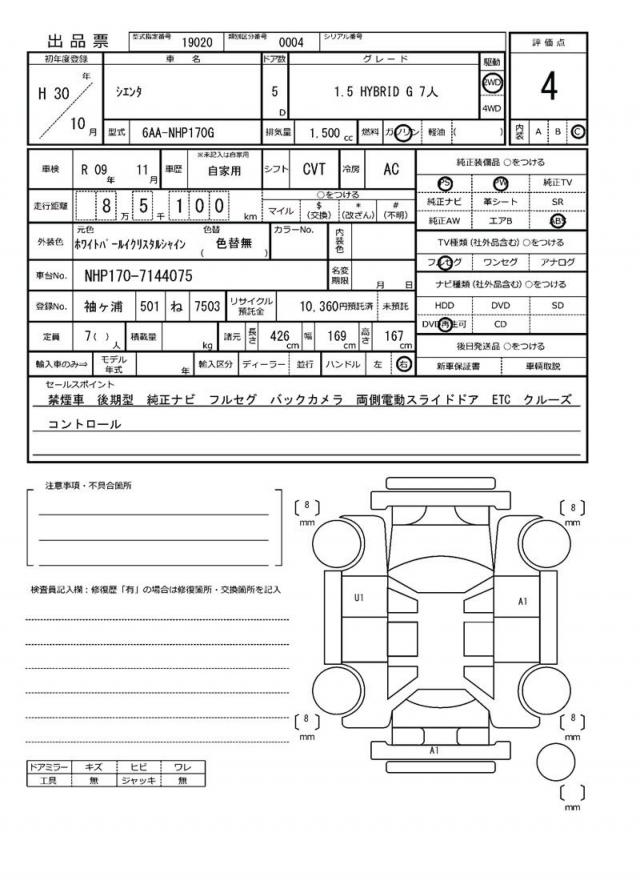 出品票 型式指定番号 19020 類別区分番号 0004 シリアル番号
初年度登録 車名 ドア数 グレード 駆動 評価点
H 30 年 10 月 シエンタ 5 D 1.5 HYBRID G 7人 2WD 4WD 4
型式 6AA-NHP170G 排気量 1.500 cc 燃料 ガソリン 軽油 ( ) 内装 A B C
車検 R 09 年 11 月 車歴 ※未記入は自家用 自家用 シフト CVT 冷房 AC
走行距離 8 万 5 千 1 0 0 km ○をつける マイル $ (交換) * (改ざん) # (不明)
外装色 元色 ホワイトパールクリスタルシャイン 色替 ( 色替無 ) カラーNo. 内装色
車台No. NHP170-7144075 名変期限 月 日
登録No. 袖ヶ浦 501 ね 7503 リサイクル預託金 10,360円預託済 未預託
定員 7( ) 人 積載量 kg 諸元 長さ 426 cm 幅 169 cm 高さ 167 cm
輸入車のみ⇒ モデル年式 年 輸入区分 ディーラー 並行 ハンドル 左 右
純正装備品 ○をつける
PS PW 純正TV
純正ナビ 革シート SR
純正AW エアB ABS
TV種類(社外品含む) ○をつける
フルセグ ワンセグ アナログ
ナビ種類(社外品含む) ○をつける
HDD DVD SD
DVD再生可 CD
後日発送品 ○をつける
新車保証書 車輌取説
セールスポイント
禁煙車 後期型 純正ナビ フルセグ バックカメラ 両側電動スライドドア ETC クルーズ
コントロール
注意事項・不具合箇所
検査員記入欄:修復歴「有」の場合は修復箇所・交換箇所を記入
ドアミラー キズ ヒビ ワレ
工具 無 ジャッキ 無
[ 8 ] mm
[ 8 ] mm
U1
A1
[ 8 ] mm
[ 8 ] mm
A1
[ ] mm